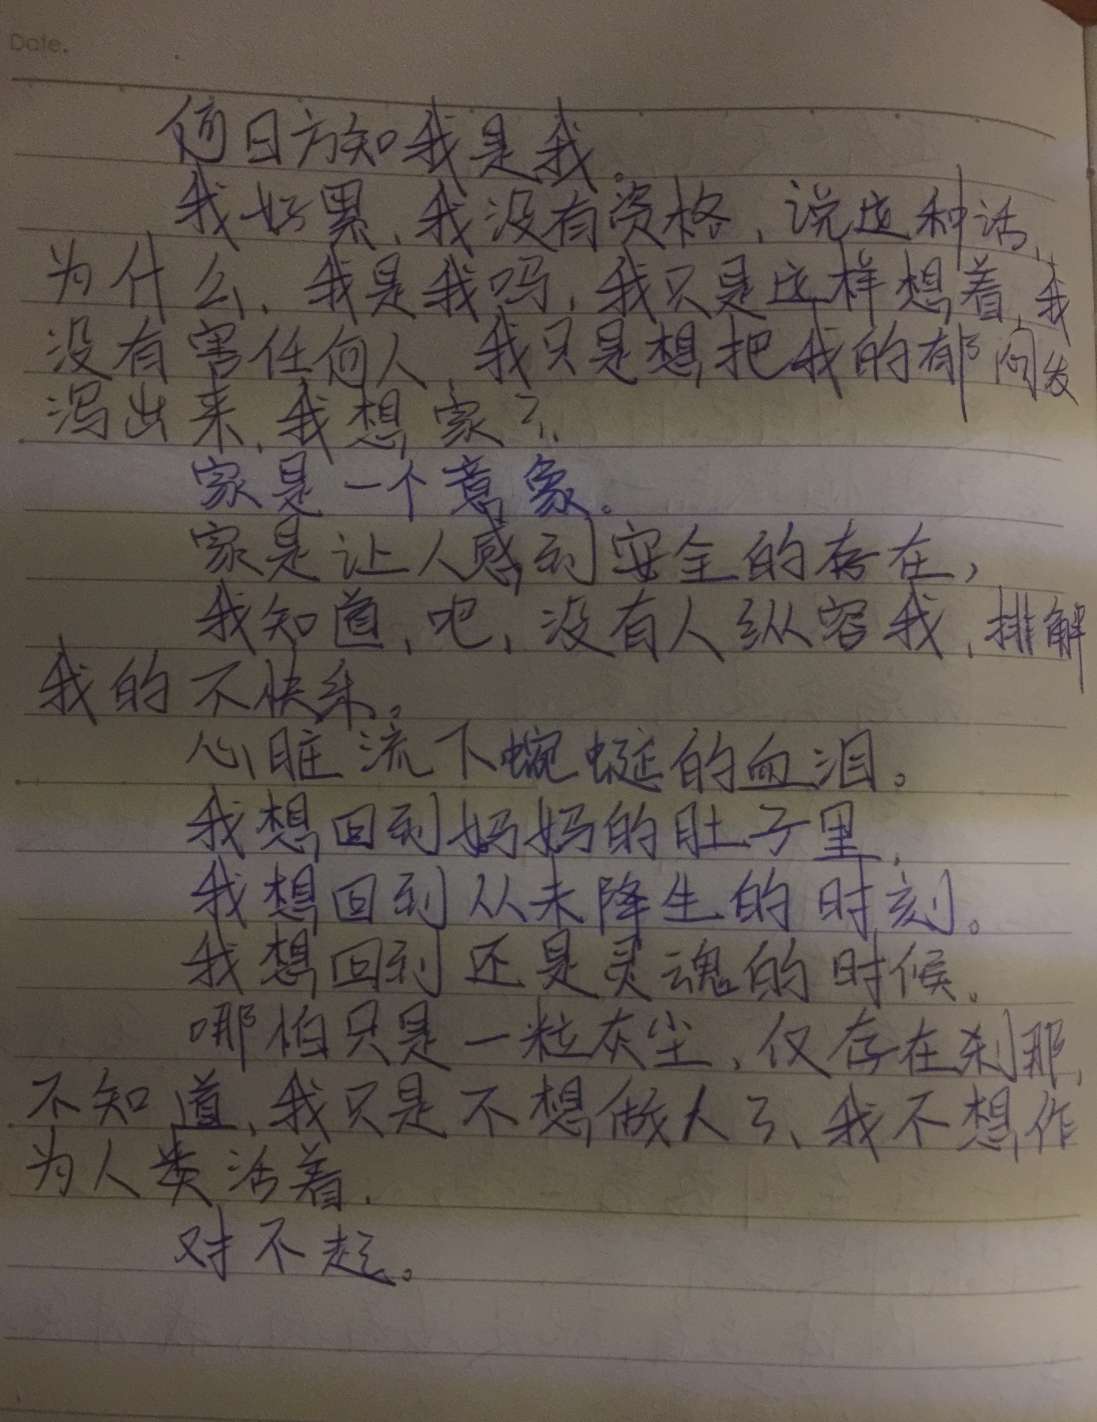 Date.
值日方知我是我。
我好累,我没有资格,说这种话,
为什么,我是我吗,我只是这样想着,我
没有害任何人,我只是想把我的郁闷发
泻出来,我想家了,
家是一个意象。
家是让人感到安全的存在,
我知道,吧,没有人纵容我,排解
我的不快乐。
心脏流下蜿蜒的血泪。
我想回到妈妈的肚子里,
我想回到从未降生的时刻。
我想回到还是灵魂的时候。
哪怕只是一粒灰尘,仅存在刹那,
不知道,我只是不想做人了、我不想作
为人类活着.
对不起。